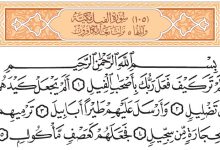 (١٠٥) سورة الفيل مكية
وآياتها ٥ نزلت بعد الكافرون
بِسْمِ ٱللَّهِ ٱلرَّحْمَٰنِ ٱلرَّحِيمِ
تَرَ كَيْفَ فَعَلَ رَبُّكَ بِأَصْحَٰبِ ٱلْفِيلِ ١ أَلَمْ يَجْعَلْ كَيْدَهُمْ
تَضْلِيلٍ ٢ وَأَرْسَلَ عَلَيْهِمْ طَيْرًا أَبَابِيلَ ٣ تَرْمِيهِم
جَارَةٍ مِّن سِجِّيلٍ ٤ فَجَعَلَهُمْ كَعَصْفٍ مَّأْكُولٍ ٥